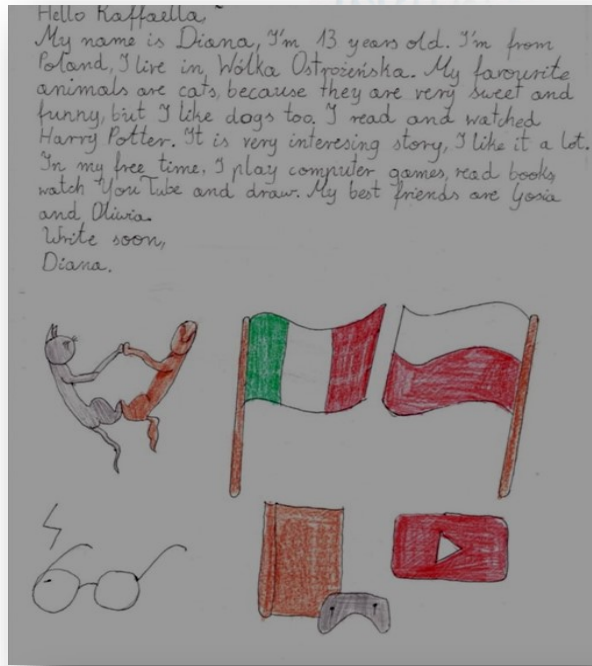 Hello Raffaella,
My name is Diana, I'm 13 years old. I'm from
Poland, I live in Wólka Ostrożeńska. My favourite
animals are cats, because they are very sweet and
funny, but I like dogs too. I read and watched
Harry Potter. It is very interesing story, I like it a lot.
In my free time, I play computer games, read books,
watch YouTube and draw. My best friends are Gosia
and Oliwia.
Write soon,
Diana.